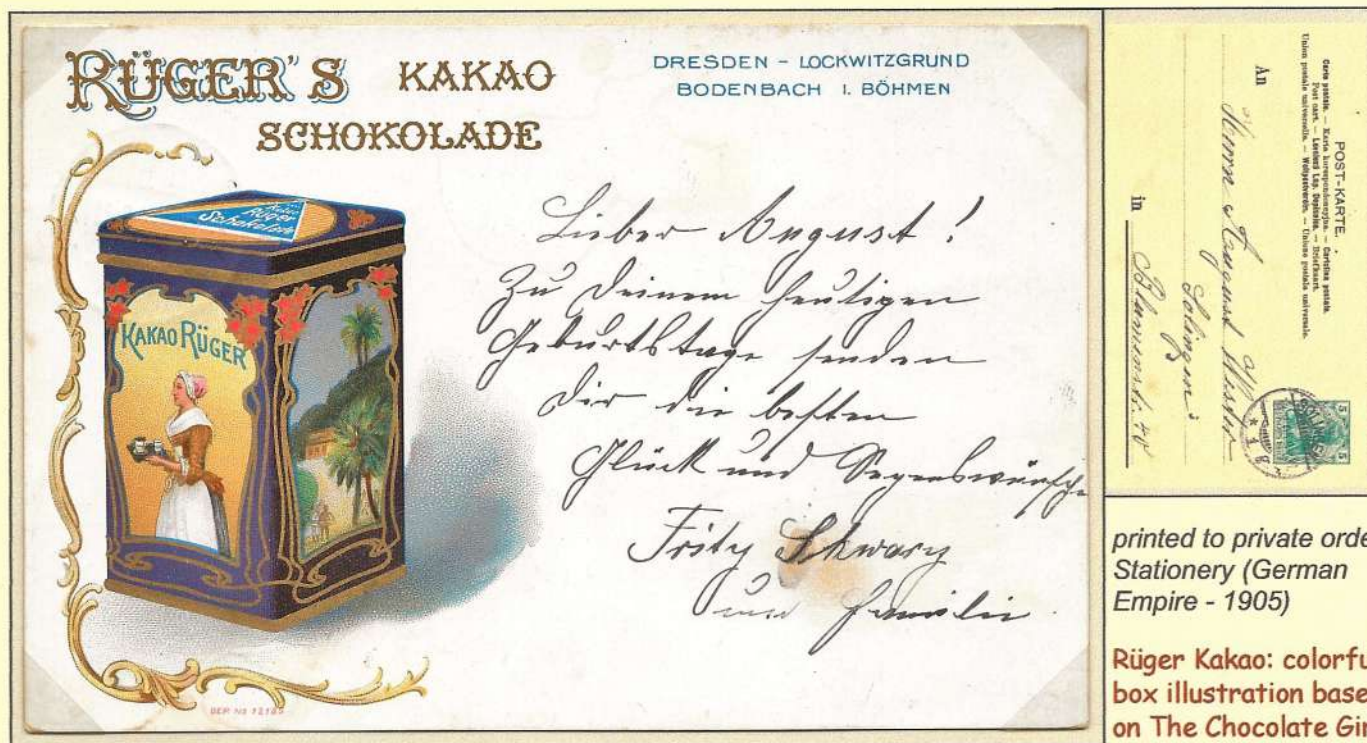 RÜGER'S KAKAO
SCHOKOLADE
DRESDEN - LOCKWITZGRUND
BODENBACH I. BÖHMEN
Kakao
Rüger
Schokolade
KAKAO RÜGER
Lieber August!
Zu Deinem heutigen
Geburtstage senden
Dir die besten
Glück und Segenswünsche
Fritz Schwarz
und Familie
DEP. No 12185
POST-KARTE.
Carte postale. — Karta korespondencyjna. — Cartolina postale.
Post card. — Levelező Lap. Dopisnice. — Briefkaart.
Union postale universelle. — Weltpostverein. — Unione postale universale.
An
Herrn August
Solingen
in Blumenstr. 40
5 5
printed to private orde
Stationery (German
Empire - 1905)
Rüger Kakao: colorfu
box illustration base
on The Chocolate Gir